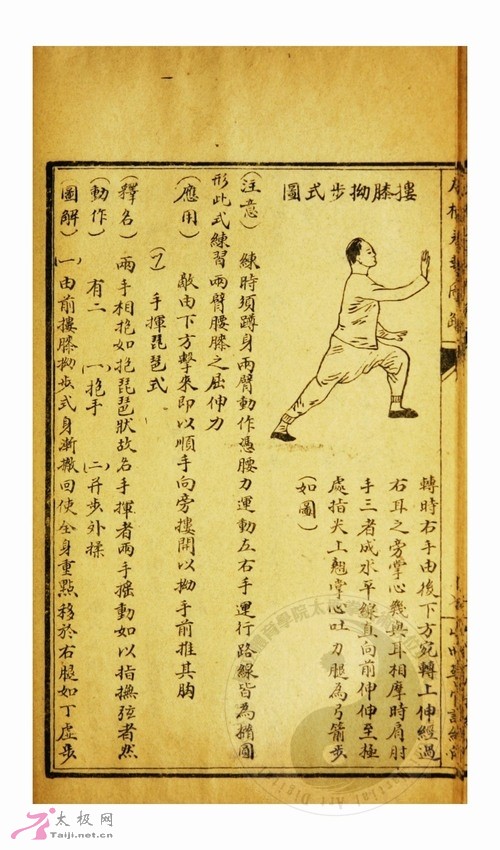 摟膝拗步式圖
轉時右手由後下方宛轉上伸經過
右耳之旁掌心幾與耳相摩時肩肘
手三者成水平線直向前伸伸至極
處指尖上翹掌心吐力腿為弓箭步
(如圖)
(注意) 練時須蹲身兩臂動作憑腰力運動左右手運行路線皆為橢圓
形此式練習兩臂腰膝之屈伸力
(應用) 敵由下方擊來即以順手向旁摟開以拗手前推其胸
(7) 手揮琵琶式
(釋名) 兩手相抱如抱琵琶狀故名手揮者兩手搖動如以指撫弦者然
(動作) 有二 (一)抱手 (二)幷步外揉
圖解) (一)由前摟膝拗步式身漸撤回使全身重點移於右腿如丁虛步
太极网
Taiji.net.cn